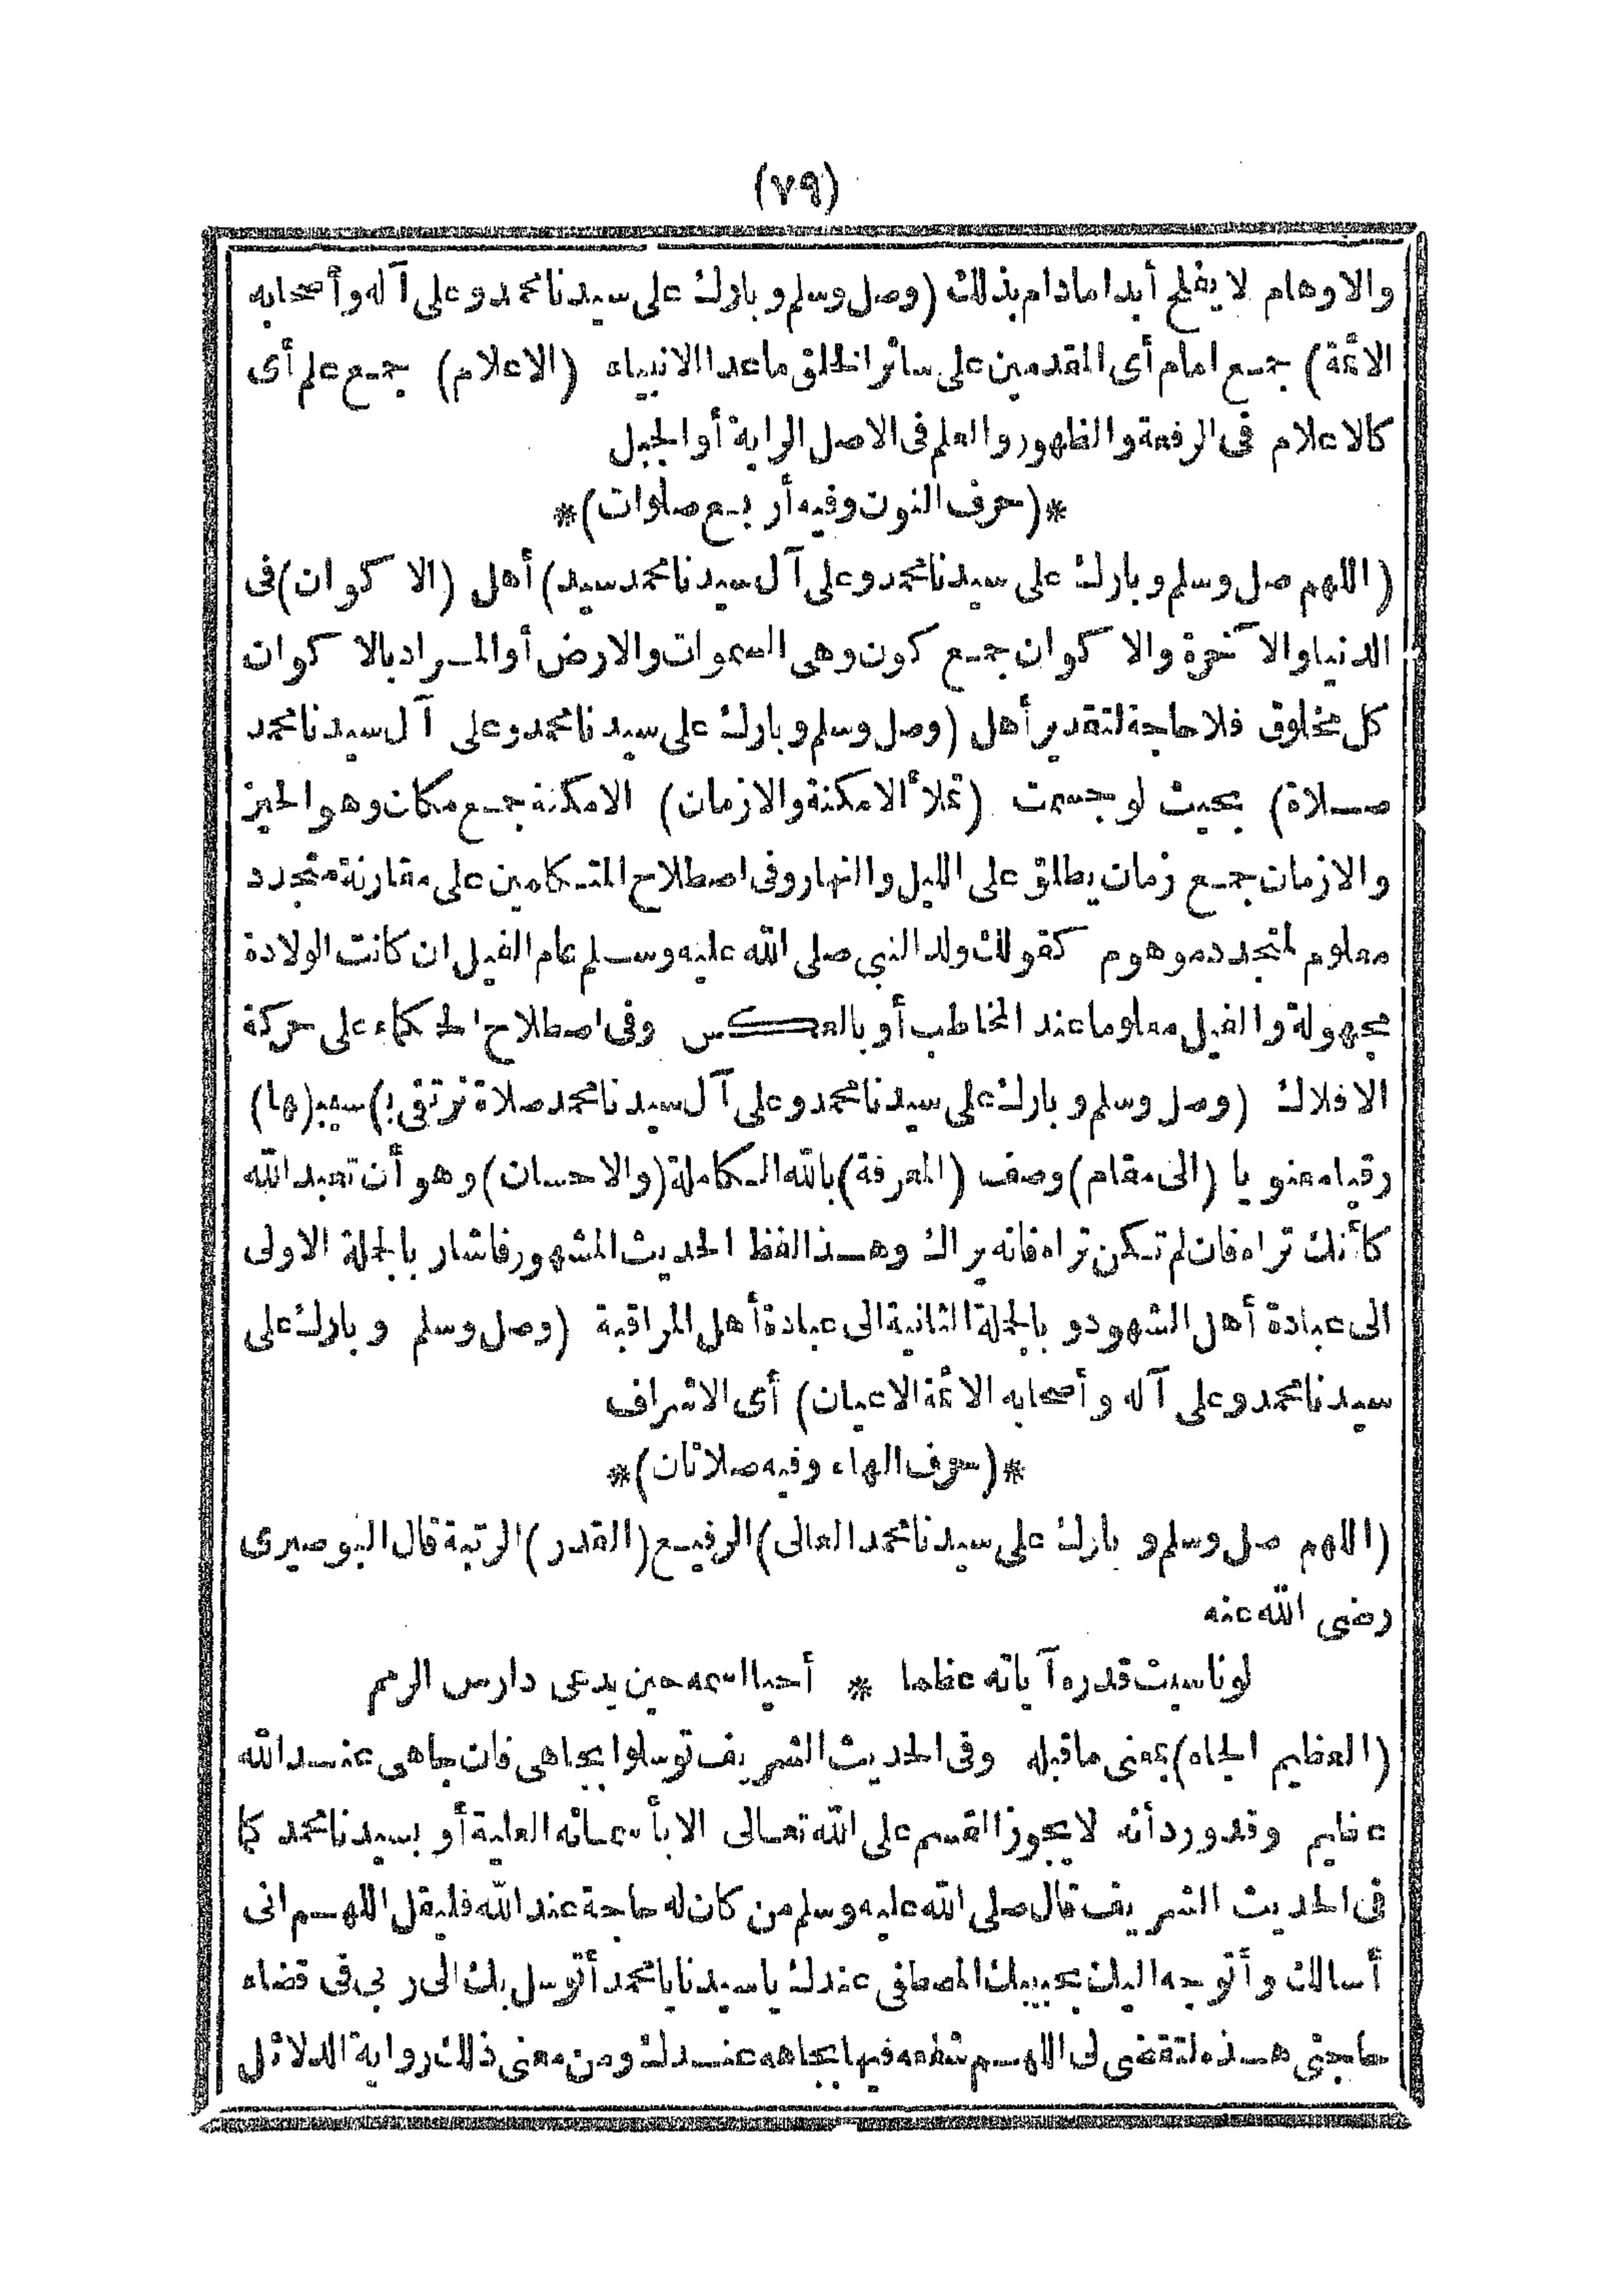 (٧٩)
والاوهام لا يفلح أبدا مادام بذلك (وصل وسلم وبارك على سيدنا محمد وعلى آله وأصحابه
الائمة) جمع امام أى المقدمين على سائر الخلق ماعدا الانبياء (الاعلام) جمع علم أى
كالاعلام فى الرفعة والظهور والعلم فى الاصل الراية أو الجبل
*(حرف النون وفيه أربع صلوات)*
(اللهم صل وسلم وبارك على سيدنا محمد وعلى آل سيدنا محمد سيد) أهل (الاكوان) فى
الدنيا والآخرة والاكوان جمع كون وهى السموات والارض أو المراد بالاكوان
كل مخلوق فلا حاجة لتقدير أهل (وصل وسلم وبارك على سيدنا محمد وعلى آل سيدنا محمد
صلاة) بحيث لو جسمت (تملأ الامكنة والازمان) الامكنة جمع مكان وهو الحيز
والازمان جمع زمان يطلق على الليل والنهار وفى اصطلاح المتكلمين على مقارنة متجدد
معلوم لمتجدد موهوم كقولك ولد النبي صلى الله عليه وسلم عام الفيل ان كانت الولادة
مجهولة والفيل معلوما عند المخاطب أو بالعكس وفى اصطلاح الحكماء على حركة
الافلاك (وصل وسلم وبارك على سيدنا محمد وعلى آل سيدنا محمد صلاة نرتقى ب) سبب (ها)
رقيا معنويا (الى مقام) وصف (المعرفة) بالله الكاملة (والاحسان) وهو أن تعبد الله
كأنك تراه فان لم تكن تراه فانه يراك وهذا لفظ الحديث المشهور فاشار بالجملة الاولى
الى عبادة أهل الشهود وبالجملة الثانية الى عبادة أهل المراقبة (وصل وسلم وبارك على
سيدنا محمد وعلى آله وأصحابه الائمة الاعيان) أى الاشراف
*(حرف الهاء وفيه صلاتان)*
(اللهم صل وسلم وبارك على سيدنا محمد العالى) الرفيع (القدر) الرتبة قال البوصيرى
رضى الله عنه
لو ناسبت قدره آياته عظما * أحيا اسمه حين يدعى دارس الرمم
(العظيم الجاه) بمعنى ماقبله وفى الحديث الشريف توسلوا بجاهى فان جاهى عند الله
عظيم وقد ورد أنه لا يجوز القسم على الله تعالى الا بأسمائه العلية أو بسيدنا محمد كما
فى الحديث الشريف قال صلى الله عليه وسلم من كان له حاجة عند الله فليقل اللهم انى
أسالك وأتوجه اليك بحبيبك المصطفى عندك ياسيدنا يامحمد أتوسل بك الى ربى فى قضاء
حاجتى هذه لتقضى لى اللهم شفعه فيها بجاهه عندك ومن معنى ذلك رواية الدلائل